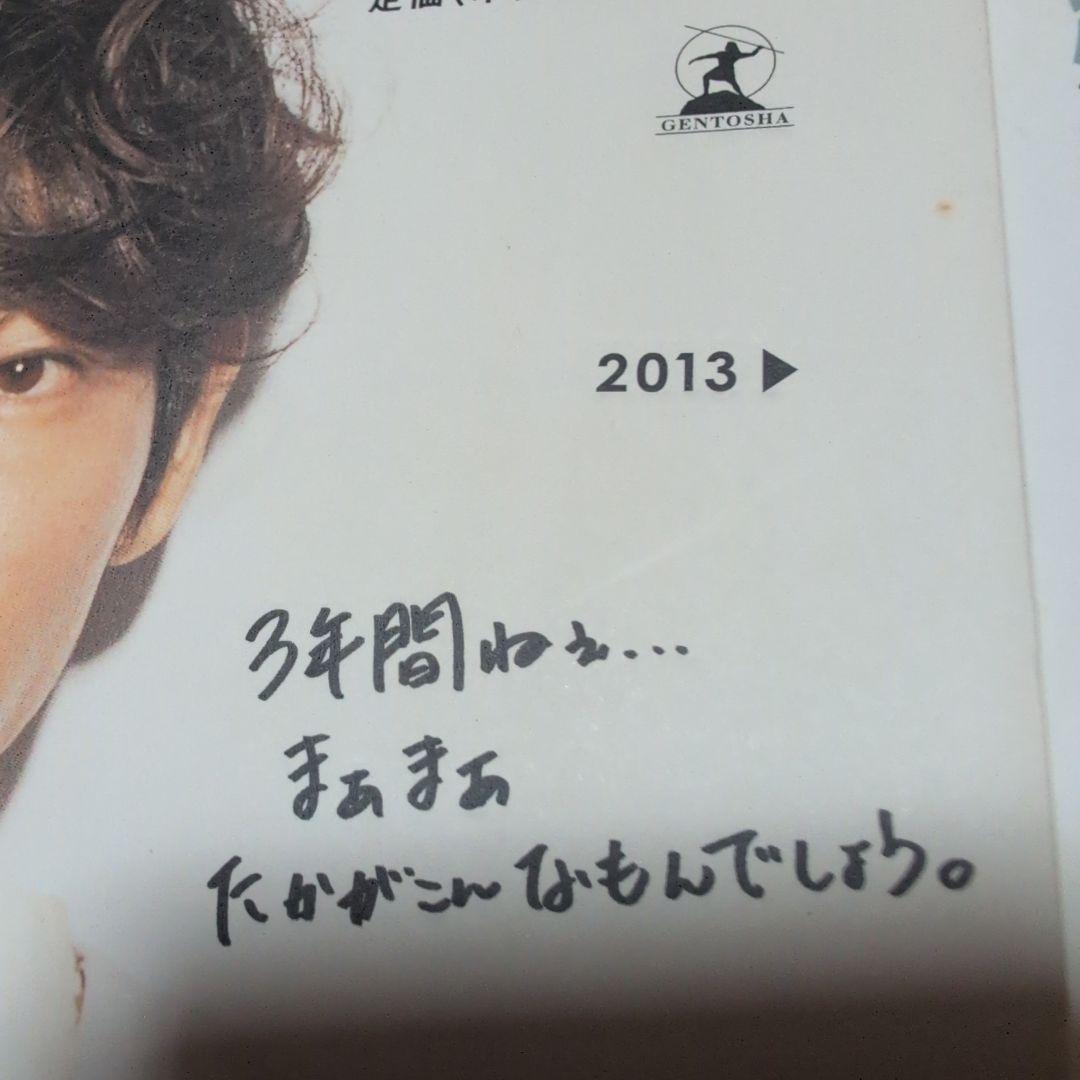 GENTOSHA
2013 ▶
3年間ねぇ...
まぁまぁ
たかがこんなもんでしょう。